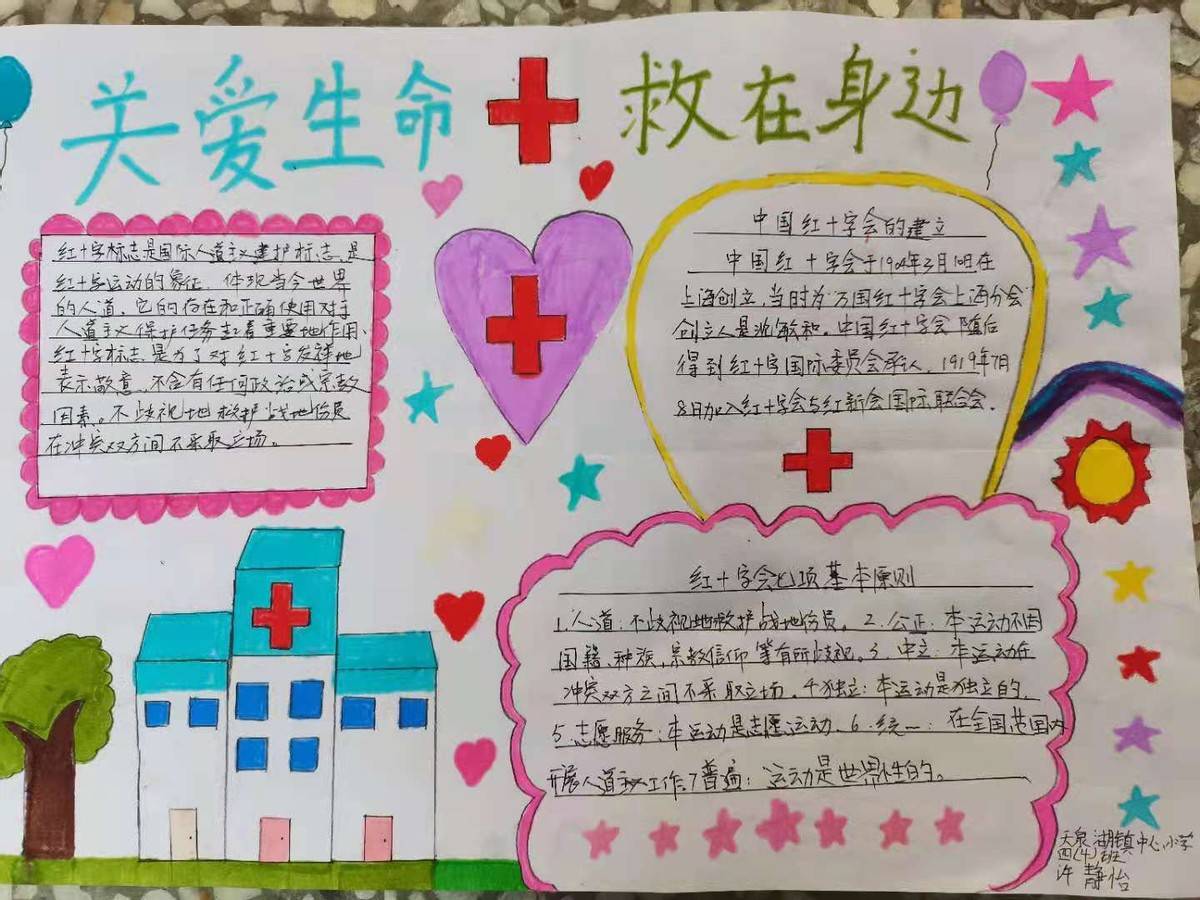 关爱生命
救在身边
红十字标志是国际人道主义建护标志,是
红十字运动的象征,体现当今世界
的人道,它的存在和正确使用对于
人道主义保护任务起着重要地作用、
红十字标志,是为了对红十字发祥地
表示敬意,不含有任何政治或宗教
因素。不歧视地救护战地伤员
在冲突双方间不采取立场。
中国红十字会的建立
中国红十字会于1904年3月10日在
上海创立,当时为"万国红十字会上海分会
创立人是沈敦和。中国红十字会随后
得到红十字国际委员会承认,1919年7月
8日加入红十字会与红新会国际联合会.
红十字会七项基本原则
1.人道:不歧视地救护战地伤员。2.公正:本运动不因
国籍、种族,宗教信仰等有所歧视。3.中立:本运动在
冲突双方之间不采取立场,4独立:本运动是独立的,
5.志愿服务:本运动是志愿运动、6.统一:在全国范围内
开展人道主义工作。7普遍:运动是世界性的。
天泉湖镇中心小学
四(4)班
许静怡